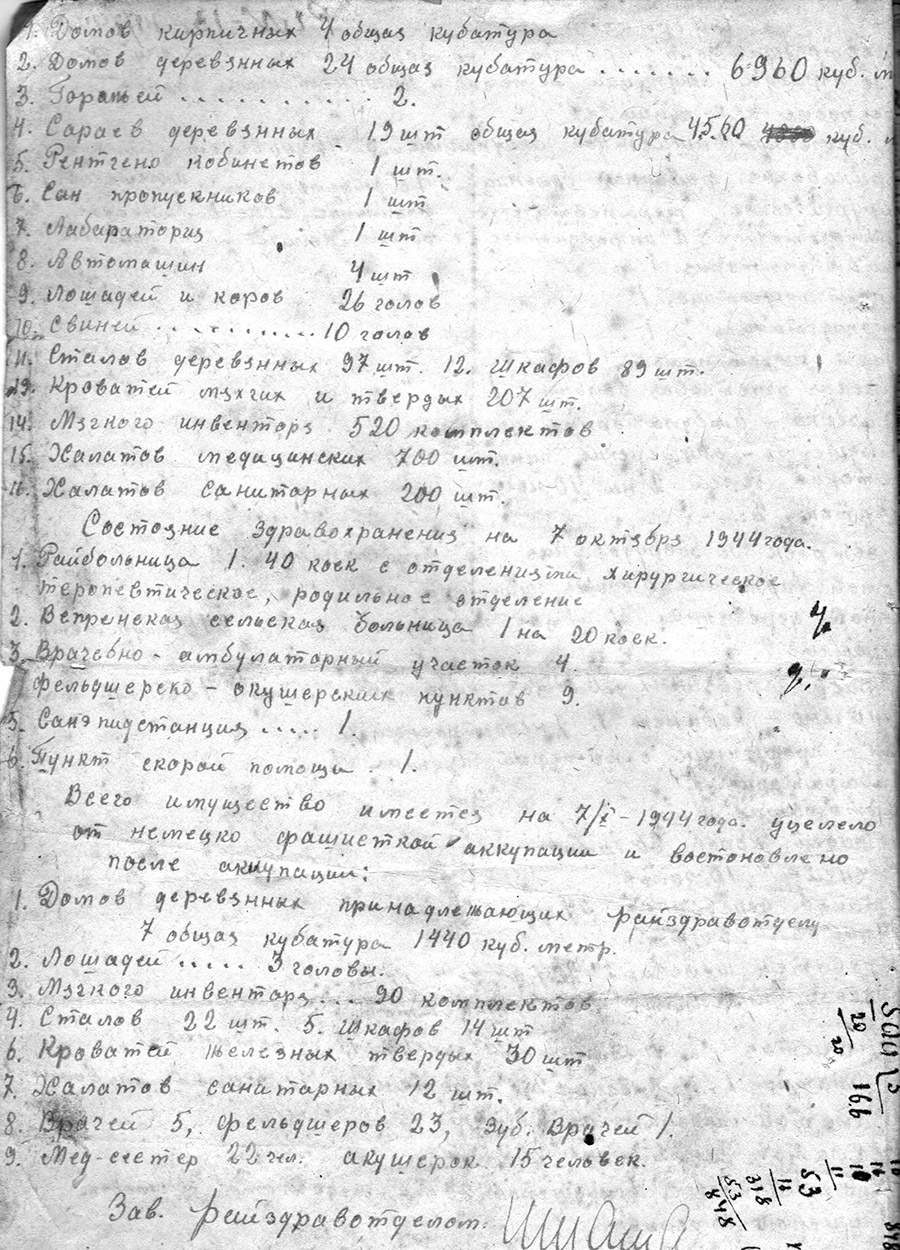 1. Домов кирпичных 4 общая кубатура
2. Домов деревянных 24 общая кубатура ....... 6960 куб. м
3. Горажей ........... 2.
4. Сараев деревянных 19 шт общая кубатура 4500 куб. м
5. Рентгено кобинетов 1 шт.
6. Сан пропускников 1 шт
7. Лабаратория 1 шт
8. Автомашин 4 шт
9. Лошадей и коров 26 голов
10. Свиней ........... 10 голов
11. Сталов деревянных 97 шт. 12. Шкафов 89 шт.
13. Кроватей мяхгих и твердых 207 шт.
14. Мягкого инвентаря 520 комплектов
15. Халатов медицинских 700 шт.
16. Халатов санитарных 200 шт.
Состояние здравохранения на 7 октября 1944 года.
1. Райбольница 1. 40 коек с отделениями хирургическое
теропевтическое, родильное отделение
2. Вепренская сельская больница 1 на 20 коек.
3. Врачебно-амбулаторный участок 4.
фельдшерско-окушерских пунктов 9.
5. Санэпидстанция ..... 1.
6. Пункт скорай помощи. 1.
Всего имущество имеется на 7/X-1944 года. уцелело
от немецко фашисткой аккупации и востоновлено
после аккупации:
1. Домов деревянных принадлежающих райздравотделу
7 общая кубатура 1440 куб. метр.
2. Лошадей ..... 3 головы.
3. Мягкого инвентаря ... 90 комплектов
4. Сталов 22 шт. 5. Шкафов 14 шт
6. Кроватей железных твердых 30 шт
7. Халатов санитарных 12 шт.
8. Врачей 5, фельдшеров 23, Зуб. Врачей 1.
9. Мед-сестер 22 чл. акушерок 15 человек.
Зав. райздравотделом.